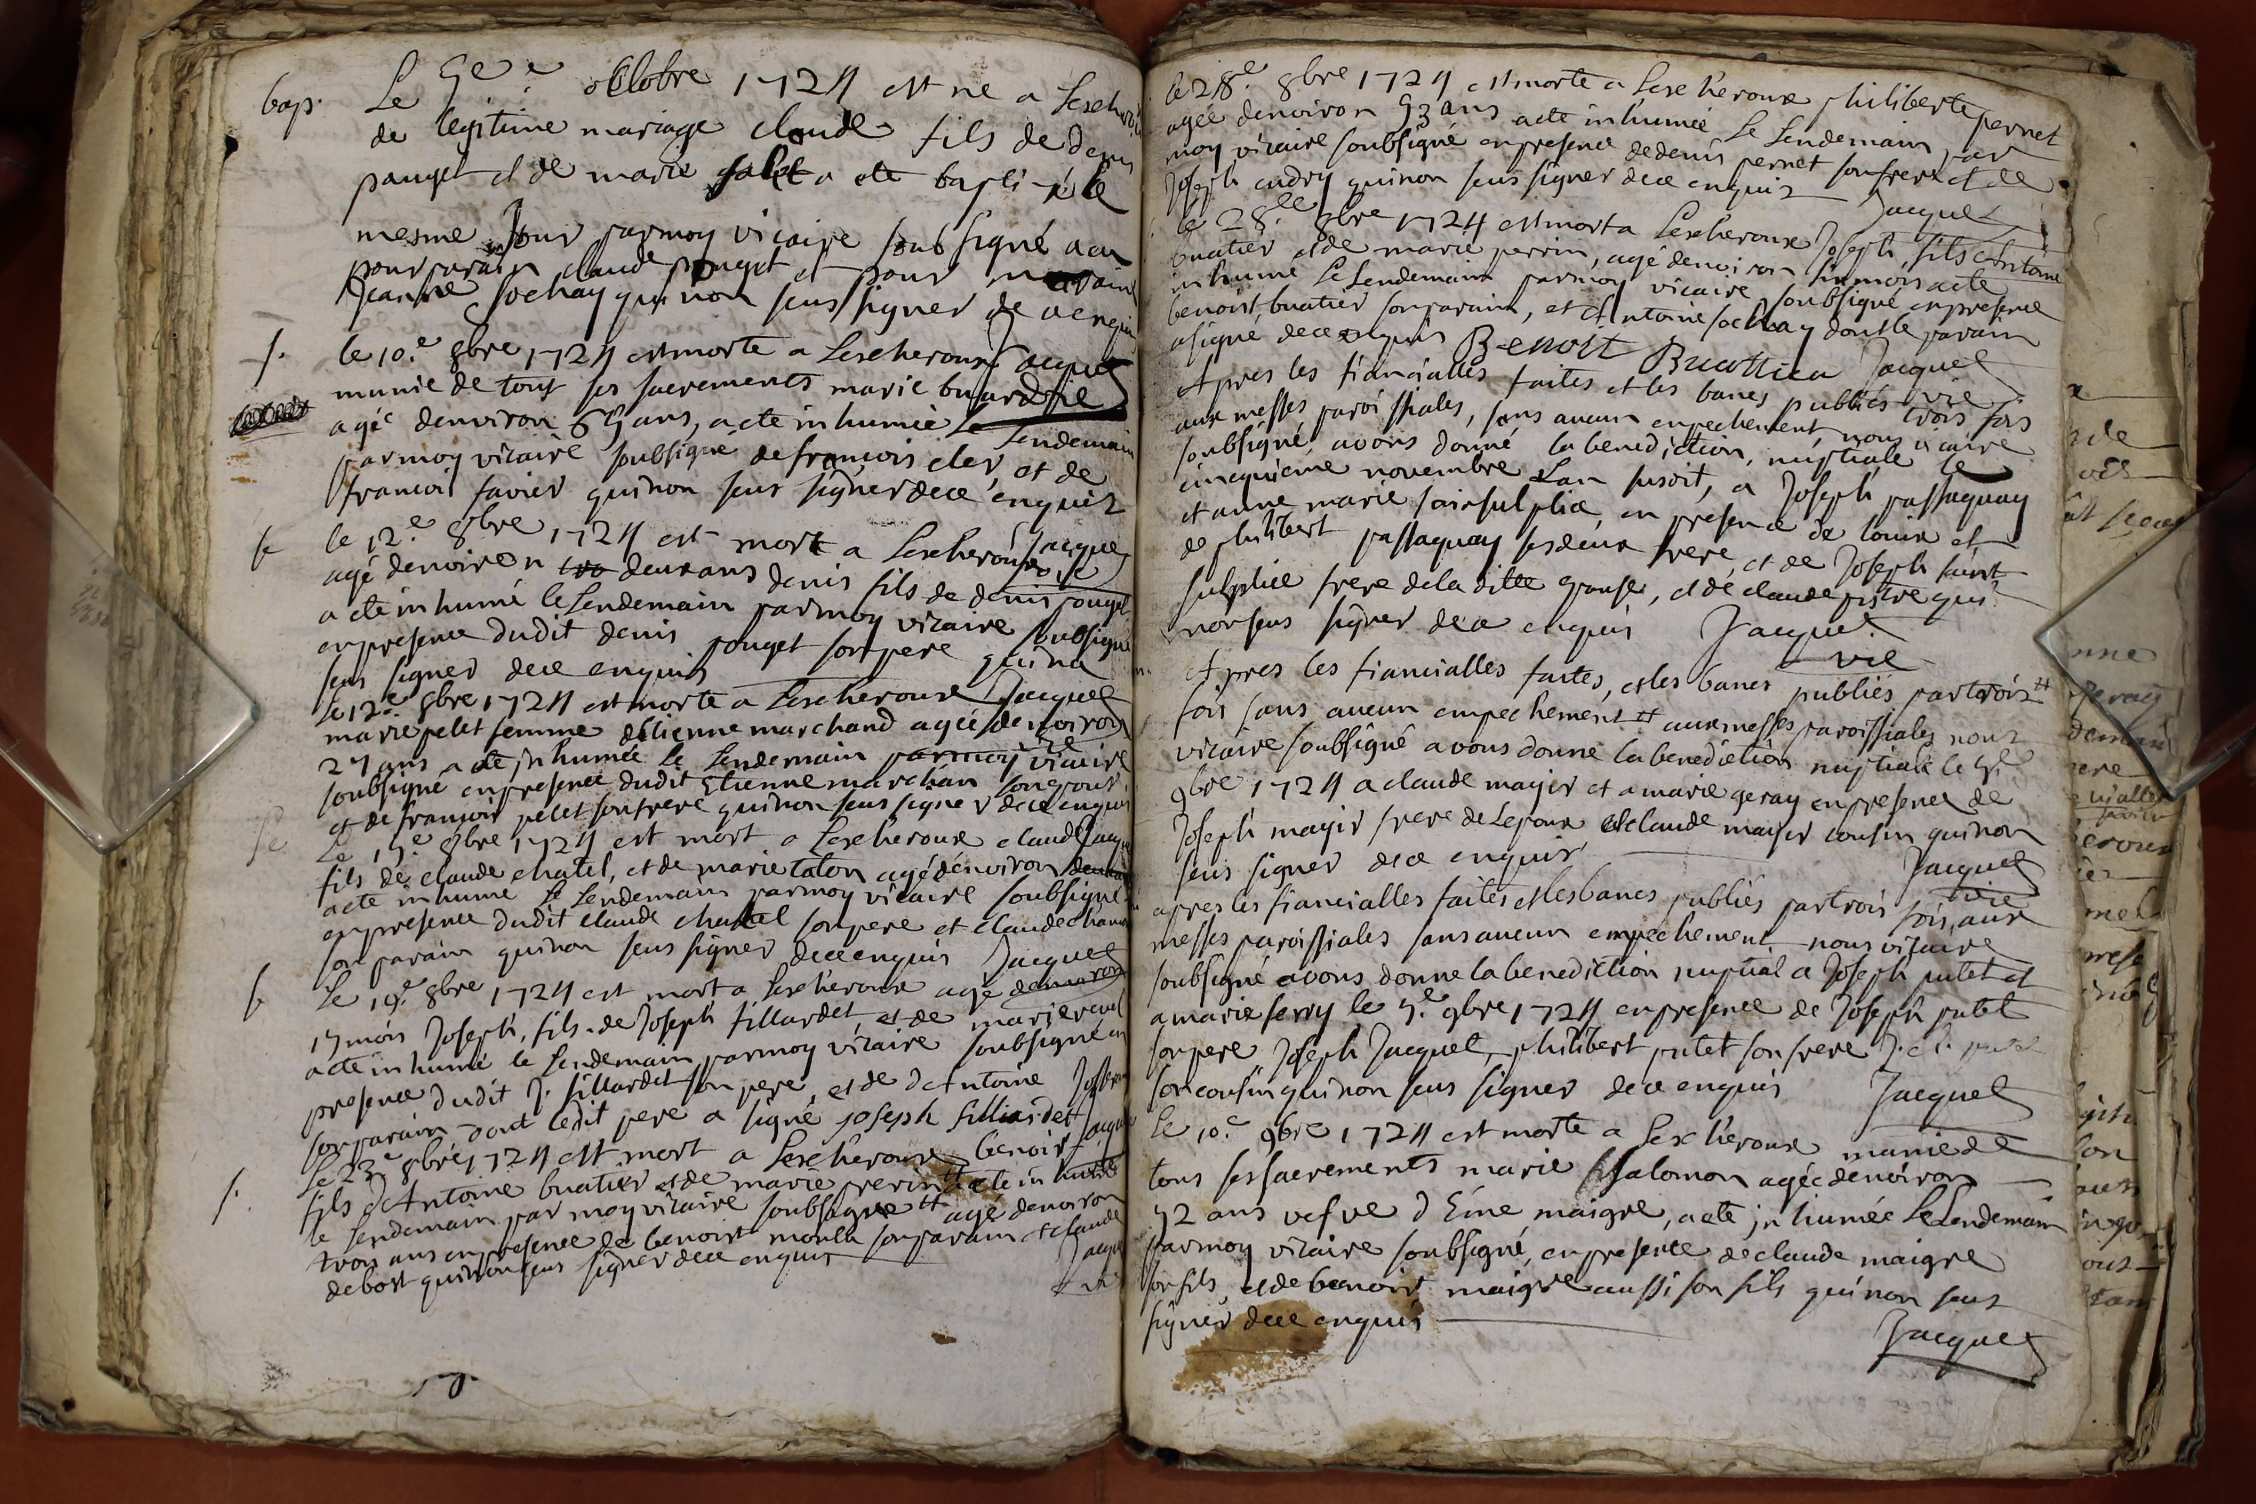 bap. Le 5e octobre 1724 est ne a Lescheroux
de legitime mariage claude fils de denis
pouget et de marie a ete baptisé le
mesme Jour parmoy vicaire soubsigné a eu
pour parain claude pouget et pour maraine
Jeanne sochay qui non seus signer de ce enquis
Jacquet
s. le 10.e 8bre 1724 est morte a Lescheroux
munie de tous ses sacrements marie
agée denviron 65 ans, a ete inhumée Le Lendemain
parmoy vicaire soubsigné de francois cler, et de
francois favier quinon seus signer dece enquis
Jacquet
s le 12.e 8bre 1724 est mort a Lescheroux
agé denviron deux ans denis fils de denis pouget
a ete inhumé le Lendemain parmoy vicaire soubsigné
enpresence dudit denis pouget son pere qui na
seus signer dece enquis Jacquet
Le 12.e 8bre 1724 est morte a Lescheroux
marie pelet femme d'etienne marchand agée denviron
27 ans a ete inhumée Le Lendemain parmoy vicaire
soubsigné enpresence dudit Etienne marchan son epoux
et de françois pelet son frere quinon seus signer dece enquis
Le 15.e 8bre 1724 est mort a Lescheroux claude
fils de claude chatel, et de marie talon agé denviron
a ete inhumé Le Lendemain parmoy vicaire soubsigné
enpresence dudit claude chatel son pere et claude
son parain quinon seus signer dece enquis Jacquet
s Le 19.e 8bre 1724 est mort a Lescheroux agé denviron
17 mois Joseph, fils de Joseph fillardet, et de marie
a ete inhumé le Lendemain parmoy vicaire soubsigné en
presence dudit J. fillardet son pere, et de d'Antoine
son parain dont ledit pere a signé joseph filliardet Jacquet
s. Le 23e 8bre 1724 est mort a Lescheroux benoist
fils d'Antoine buatier et de marie perrin a ete inhumé
le Lendemain par moy vicaire soubsigné # agé denviron
trois ans enpresence de benoist son parain et claude
debost quinon seus signer dece enquis Jacquet
vic
le 28e. 8bre 1724 est morte a Lescheroux philiberte pernet
agée denviron 53 ans a ete inhumée Le Lendemain par
moy vicaire soubsigné enpresence dedenis pernet son frere et de
Joseph cadry quinon seus signer dece enquis Jacquet
le 28.e 8bre 1724 est mort a Lescheroux Joseph, fils d'Antoine
buatier et de marie perrin, agé denviron mois a ete
inhumé Le Lendemain parmoy vicaire soubsigné enpresence
benoist buatier son parain, et Antoine sochay dont le parain
a signé dece enquis Benoit Buattier Jacquet
vic
Apres les fiancialles faites et les bancs publiés trois fois
aux messes paroissiales, sans aucun enpechement, nous vicaire
soubsigné avons donné la benediction, nuptiale le
cinquieme novembre Lan susdit, a Joseph passaquay
et anne marie saint sulplice, en presence de louis et
de philibert passaquay ses deux frere, et de Joseph saint
sulplice frere dela ditte epouse, et de claude pistre qui
nonseus signer dece enquis Jacquet
vic
Apres les fiancialles faites, et les bancs publiés par trois
fois sans aucun empechement # aux messes paroissiales nous
vicaire soubsigné avons donne la benediction nuptiale le
9bre 1724 a claude mayir et a marie geray enpresence de
Joseph mayir frere de Lepoux et claude mayir cousin quinon
seus signer dece enquis Jacquet
vic
apres les fiancialles faites et les bancs publiés par trois fois, aux
messes paroissiales sans aucun empechement nous vicaire
soubsigné avons donne la benediction nuptial a Joseph putet et
a marie ferry le 7.e 9bre 1724 enpresence de Joseph putet
son pere Joseph Jacquet, philibert putet son frere
son cousin quinon seus signer dece enquis Jacquet
Le 10.e 9bre 1724 est morte a Lescheroux munie de
tous ses sacrements marie salomon agée denviron
72 ans vefve d'Eine maigre, a ete inhumée Le Lendemain
parmoy vicaire soubsigné, enpresence de claude maigre
son fils, et de benoist maigre aussi son fils qui non seus
signer dece enquis
Jacquet